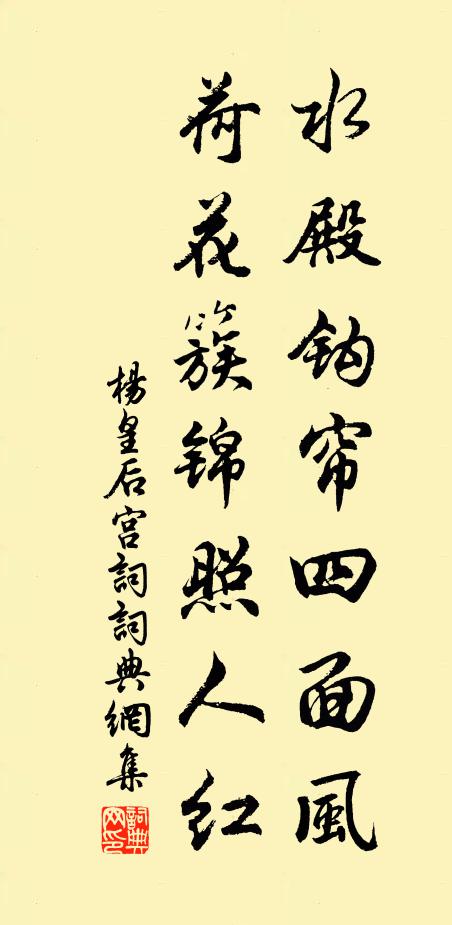 水殿钩帘四面風
荷花簇锦照人红
楊皇后宫詞詞典網集
詞典网印